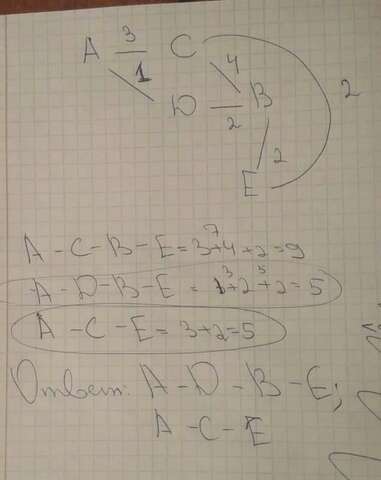 A 3 C
1 4
D 2 B 2
2
E
A - C - B - E = 3 + 4 7 + 2 = 9
A - D - B - E = 1 + 2 3 + 2 5 = 5
A - C - E = 3 + 2 = 5
Ответ: A - D - B - E;
A - C - E